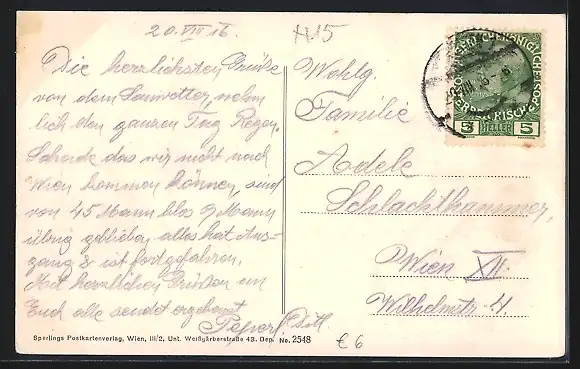 20. VIII 16.
A15
Die herzlichsten Grüße
von dem Sauwetter, nehm
lich den ganzen Tag Regen.
Schade das wir nicht nach
Wien kommen können, sind
von 45 Mann blos 9 Mann
übrig geblieben alles hat Aus-
gang & ist fortgefahren.
Mit herzlichen Grüßen an
Euch alle sendet ergebenst
Peperl
Wohlg.
Familie
Adele
Schlachthammer,
Wien XII.
Wilhelmstr. 4.
5 HELLER 5
€ 6
Sperlings Postkartenverlag, Wien, III/2, Unt. Weißgärberstraße 43. Dep. No. 2548